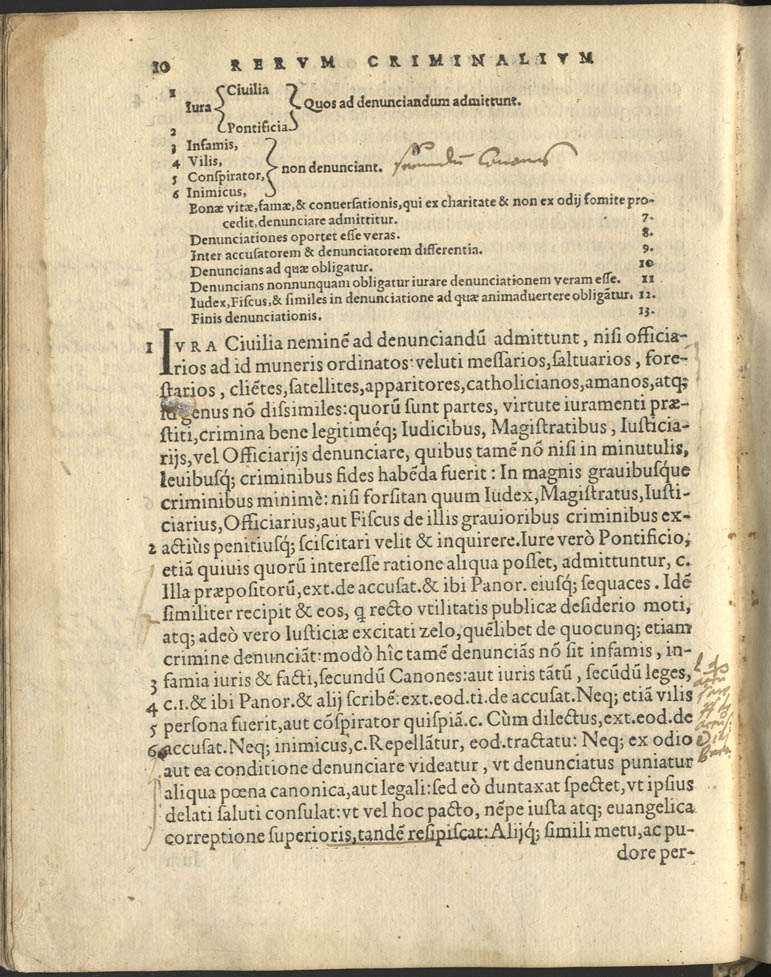 10 RERVM CRIMINALIVM
1 Ciuilia
Iura Quos ad denunciandum admittunt.
2 Pontificia
3 Infamis,
4 Vilis,
5 Conſpirator, non denunciant. secundũ Canones
6 Inimicus,
Bonæ vitæ, famæ, & conuerſationis, qui ex charitate & non ex odij fomite pro-
cedit, denunciare admittitur. 7.
Denunciationes oportet eſſe veras. 8.
Inter accuſatorem & denunciatorem differentia. 9.
Denuncians ad quæ obligatur. 10
Denuncians nonnunquam obligatur iurare denunciationem veram eſſe. 11
Iudex, Fiſcus, & ſimiles in denunciatione ad quæ animaduertere obligãtur. 12.
Finis denunciationis. 13.
1 IVRA Ciuilia neminẽ ad denunciandũ admittunt, niſi officia-
rios ad id muneris ordinatos: veluti meſſarios, ſaltuarios, fore-
ſtarios, cliẽtes, ſatellites, apparitores, catholicianos, amanos, atq;
id genus nõ diſsimiles: quorũ ſunt partes, virtute iuramenti præ-
ſtiti, crimina bene legitiméq; Iudicibus, Magiſtratibus, Iuſticia-
rijs, vel Officiarijs denunciare, quibus tamẽ nõ niſi in minutulis,
leuibuſq; criminibus fides habẽda fuerit: In magnis grauibuſque
criminibus minimè: niſi forſitan quum Iudex, Magiſtratus, Iuſti-
ciarius, Officiarius, aut Fiſcus de illis grauioribus criminibus ex-
2 actiùs penitiuſq; ſciſcitari velit & inquirere. Iure verò Pontificio,
etiã quiuis quorũ intereſſe ratione aliqua poſſet, admittuntur, c.
Illa præpoſitorũ, ext. de accuſat. & ibi Panor. eiuſq́; ſequaces. Idẽ
ſimiliter recipit & eos, q̃ recto vtilitatis publicæ deſiderio moti,
atq; adeò vero Iuſticiæ excitati zelo, quẽlibet de quocunq; etiam
crimine denunciãt: modò hîc tamẽ denunciãs nõ ſit infamis, in-
famia iuris & facti, ſecundũ Canones: aut iuris tãtũ, ſecũdũ leges,
3 c. 1. & ibi Panor. & alij ſcribẽ: ext. eod. ti. de accuſat. Neq; etiã vilis
4 perſona fuerit, aut cõſpirator quiſpiã. c. Cùm dilectus, ext. eod. de
5 accuſat. Neq; inimicus, c. Repellãtur, eod. tractatu: Neq; ex odio
6 aut ea conditione denunciare videatur, vt denunciatus puniatur
aliqua pœna canonica, aut legali: ſed eò duntaxat ſpectet, vt ipſius
delati ſaluti conſulat: vt vel hoc pacto, nẽpe iuſta atq; euangelica
correptione ſuperioris, tandẽ reſipiſcat: Alijq́; ſimili metu, ac pu-
dore per-